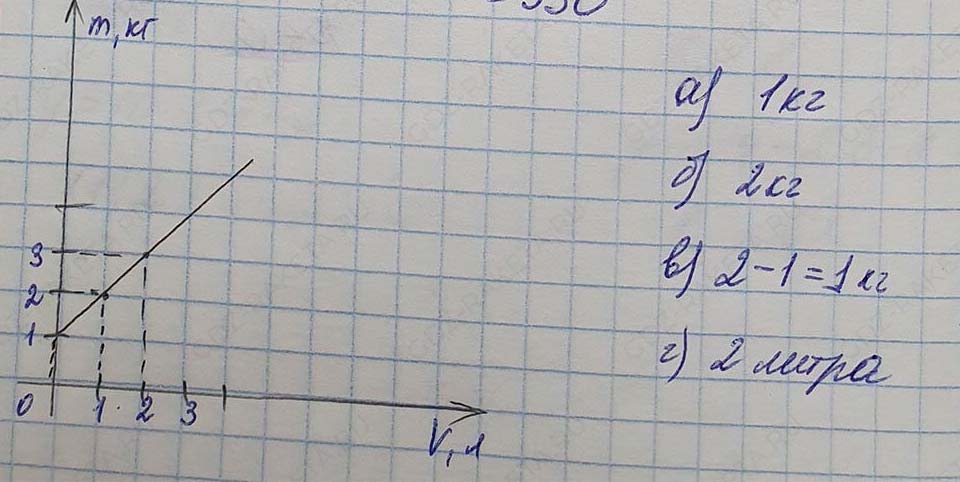 m, кг
3
2
1
0 1 2 3
V, л
а) 1 кг
б) 2 кг
в) 2 - 1 = 1 кг
г) 2 литра